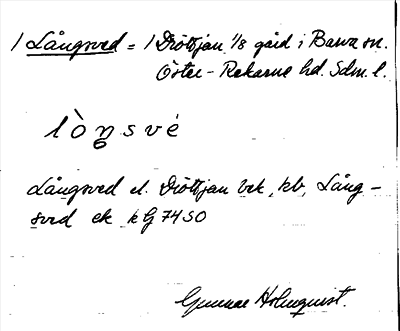 / Långsved = / Dröttjan 1/8 gård i Barva sn.
Öster-Rekarne hd. Sdm. l.
lòŋsvé
Långsved el. Dröttjan bek, kb, Lång-
sved ek kG 74 SO
Gunnar Holmquist.